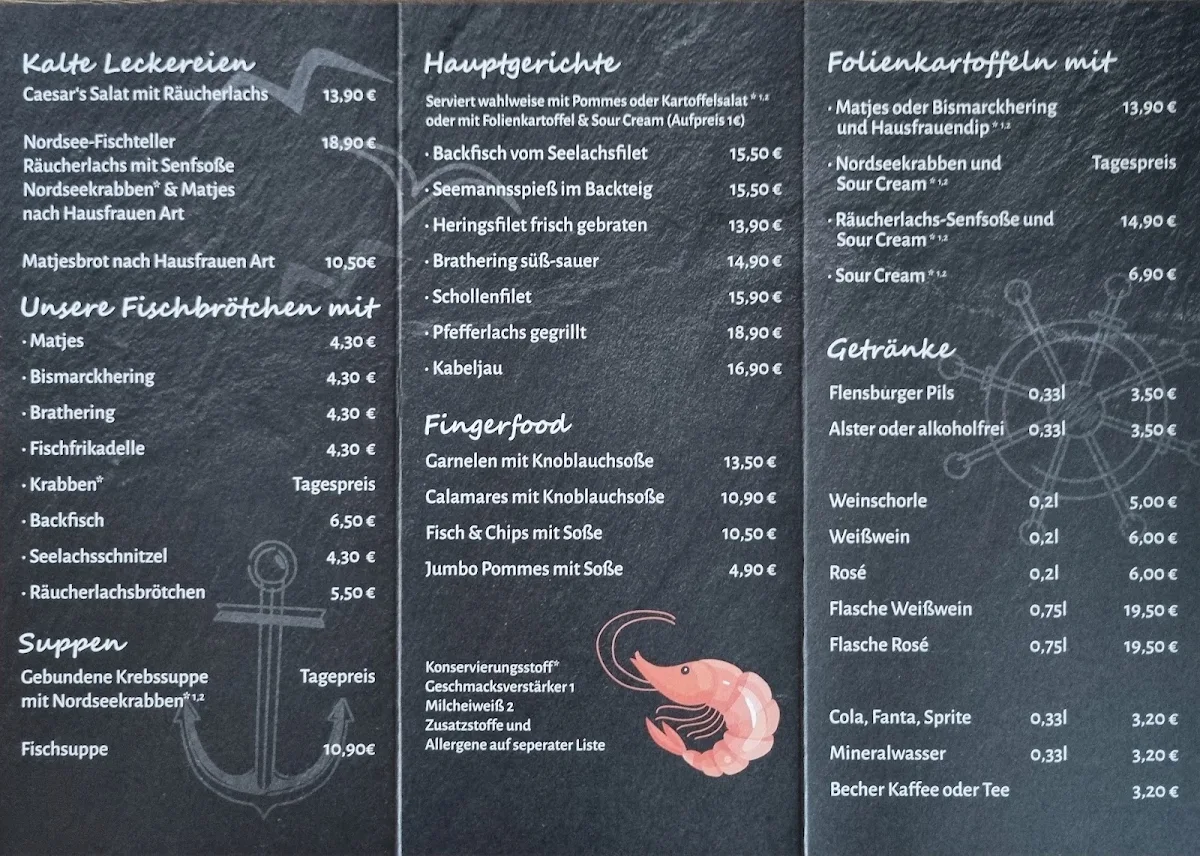 Kalte Leckereien
Caesar's Salat mit Räucherlachs 13,90 €
Nordsee-Fischteller 18,90 €
Räucherlachs mit Senfsoße
Nordseekrabben* & Matjes
nach Hausfrauen Art
Matjesbrot nach Hausfrauen Art 10,50€
Unsere Fischbrötchen mit
· Matjes 4,30 €
· Bismarckhering 4,30 €
· Brathering 4,30 €
· Fischfrikadelle 4,30 €
· Krabben* Tagespreis
· Backfisch 6,50 €
· Seelachsschnitzel 4,30 €
· Räucherlachsbrötchen 5,50 €
Suppen
Gebundene Krebssuppe Tagepreis
mit Nordseekrabben* 1,2
Fischsuppe 10,90€
Hauptgerichte
Serviert wahlweise mit Pommes oder Kartoffelsalat * 1,2
oder mit Folienkartoffel & Sour Cream (Aufpreis 1€)
· Backfisch vom Seelachsfilet 15,50 €
· Seemannsspieß im Backteig 15,50 €
· Heringsfilet frisch gebraten 13,90 €
· Brathering süß-sauer 14,90 €
· Schollenfilet 15,90 €
· Pfefferlachs gegrillt 18,90 €
· Kabeljau 16,90 €
Fingerfood
Garnelen mit Knoblauchsoße 13,50 €
Calamares mit Knoblauchsoße 10,90 €
Fisch & Chips mit Soße 10,50 €
Jumbo Pommes mit Soße 4,90 €
Konservierungsstoff*
Geschmacksverstärker 1
Milcheiweiß 2
Zusatzstoffe und
Allergene auf seperater Liste
Folienkartoffeln mit
· Matjes oder Bismarckhering 13,90 €
und Hausfrauendip * 1,2
· Nordseekrabben und Tagespreis
Sour Cream * 1,2
· Räucherlachs-Senfsoße und 14,90 €
Sour Cream * 1,2
· Sour Cream * 1,2 6,90 €
Getränke
Flensburger Pils 0,33l 3,50 €
Alster oder alkoholfrei 0,33l 3,50 €
Weinschorle 0,2l 5,00 €
Weißwein 0,2l 6,00 €
Rosé 0,2l 6,00 €
Flasche Weißwein 0,75l 19,50 €
Flasche Rosé 0,75l 19,50 €
Cola, Fanta, Sprite 0,33l 3,20 €
Mineralwasser 0,33l 3,20 €
Becher Kaffee oder Tee 3,20 €